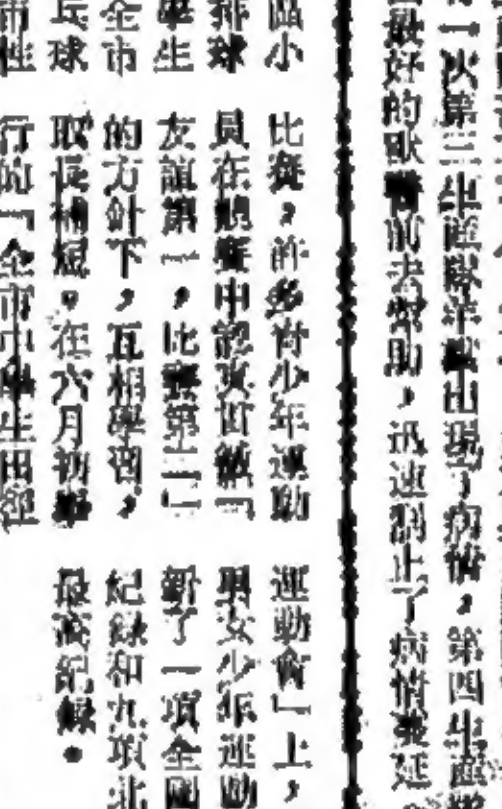 一次第三生產隊羊群出現了病情，第四生產
最好的獸醫前去幫助，迅速制止了病情蔓延
區小
排球
學生
全市
乒球
市性
比賽，許多青少年運動
員在競賽中認真貫徹「
友誼第一，比賽第二」
的方針下，互相學習，
取長補短。在六月初舉
行的「全市中學生田徑
運動會」上，
男女少年運動
新了一項全國
紀錄和九項北
最高紀錄。